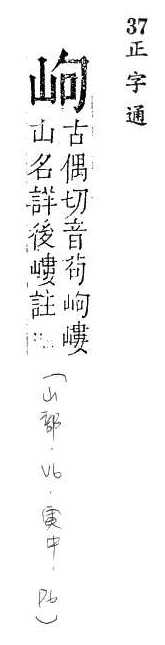 37正字通
岣
古偶切音苟岣嶁
山名詳後嶁註
(山部.V6.寅中.P6)